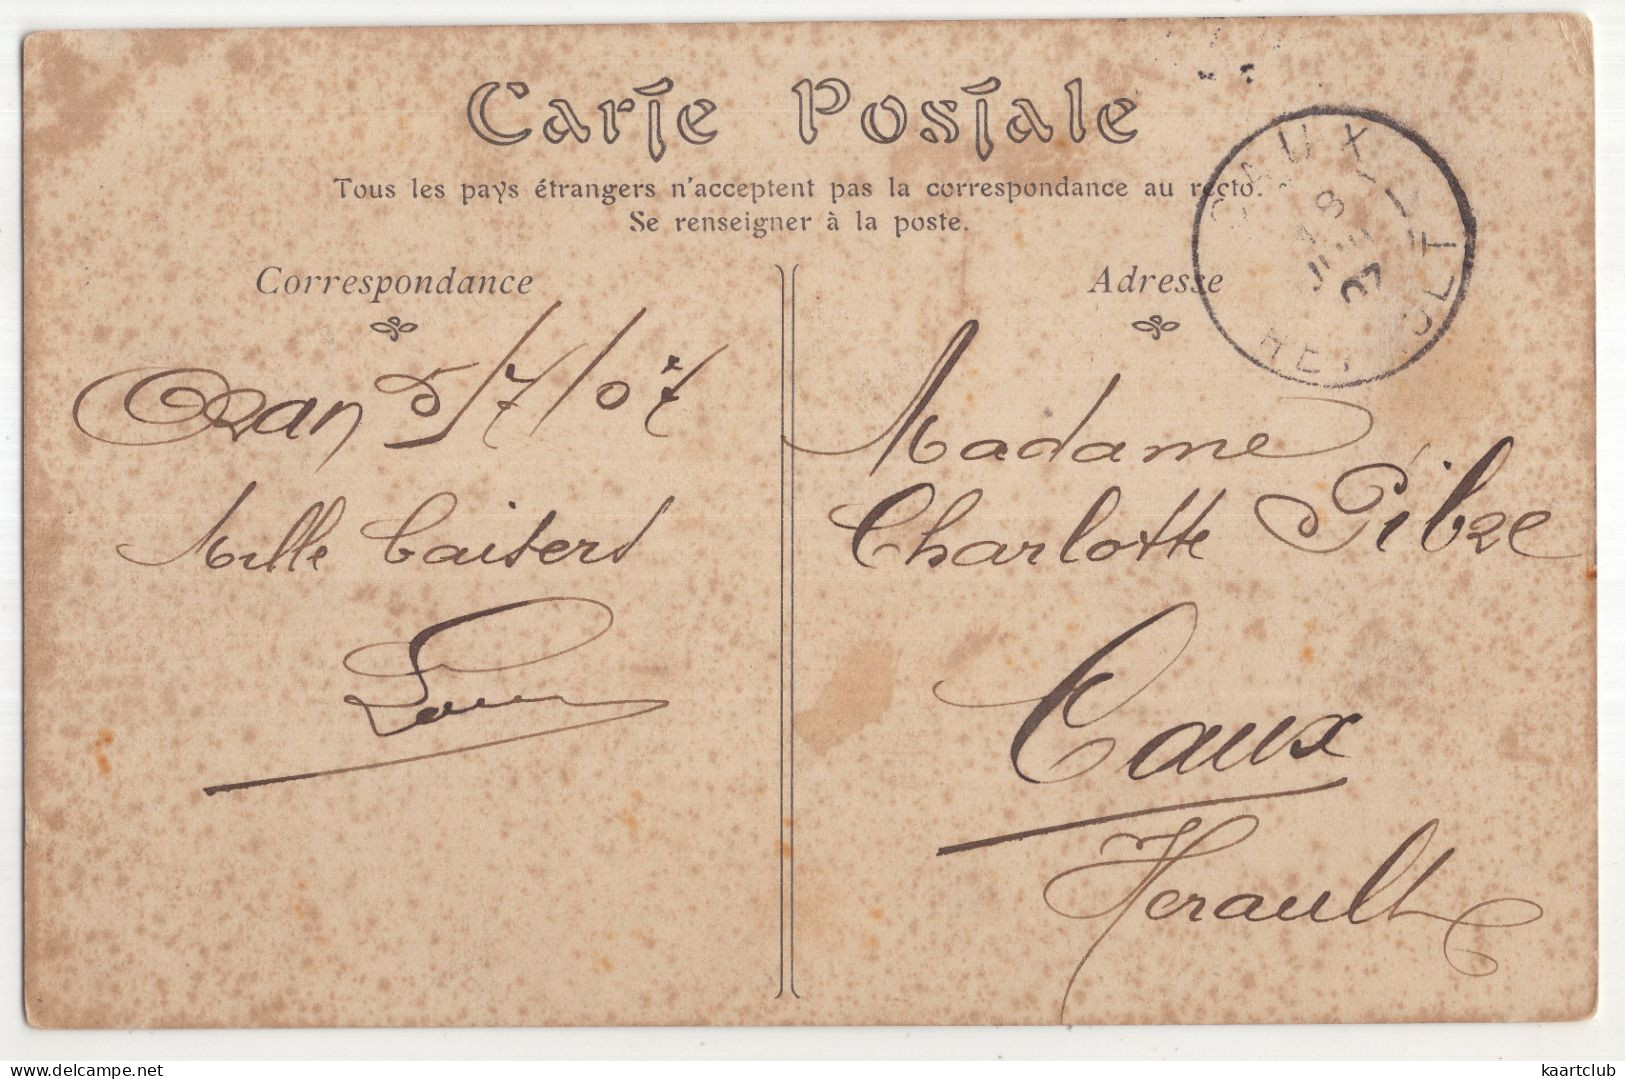 Carte Postale
Tous les pays étrangers n'acceptent pas la correspondance au recto.
Se renseigner à la poste.
CAUX
HERAULT
8
07
Correspondance
Adresse
Oran 5/7/07
Mille Baisers
Madame
Charlotte Gibre
Caux
Herault
kaartclub
delcampe.net